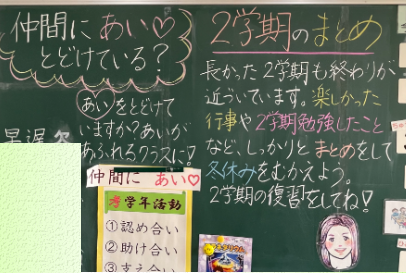 仲間に あい♡
とどけている?
あいをとどけて
いますか?あいが
あふれるクラスに!
2学期のまとめ
長かった2学期も終わりが
近づいています。楽しかった
行事や2学期勉強したこと
など、しっかりとまとめをして
冬休みをむかえよう。
2学期の復習をしてね!
早退欠
仲間に あい♡
考学年活動
①認め合い
②助け合い
③支え合い